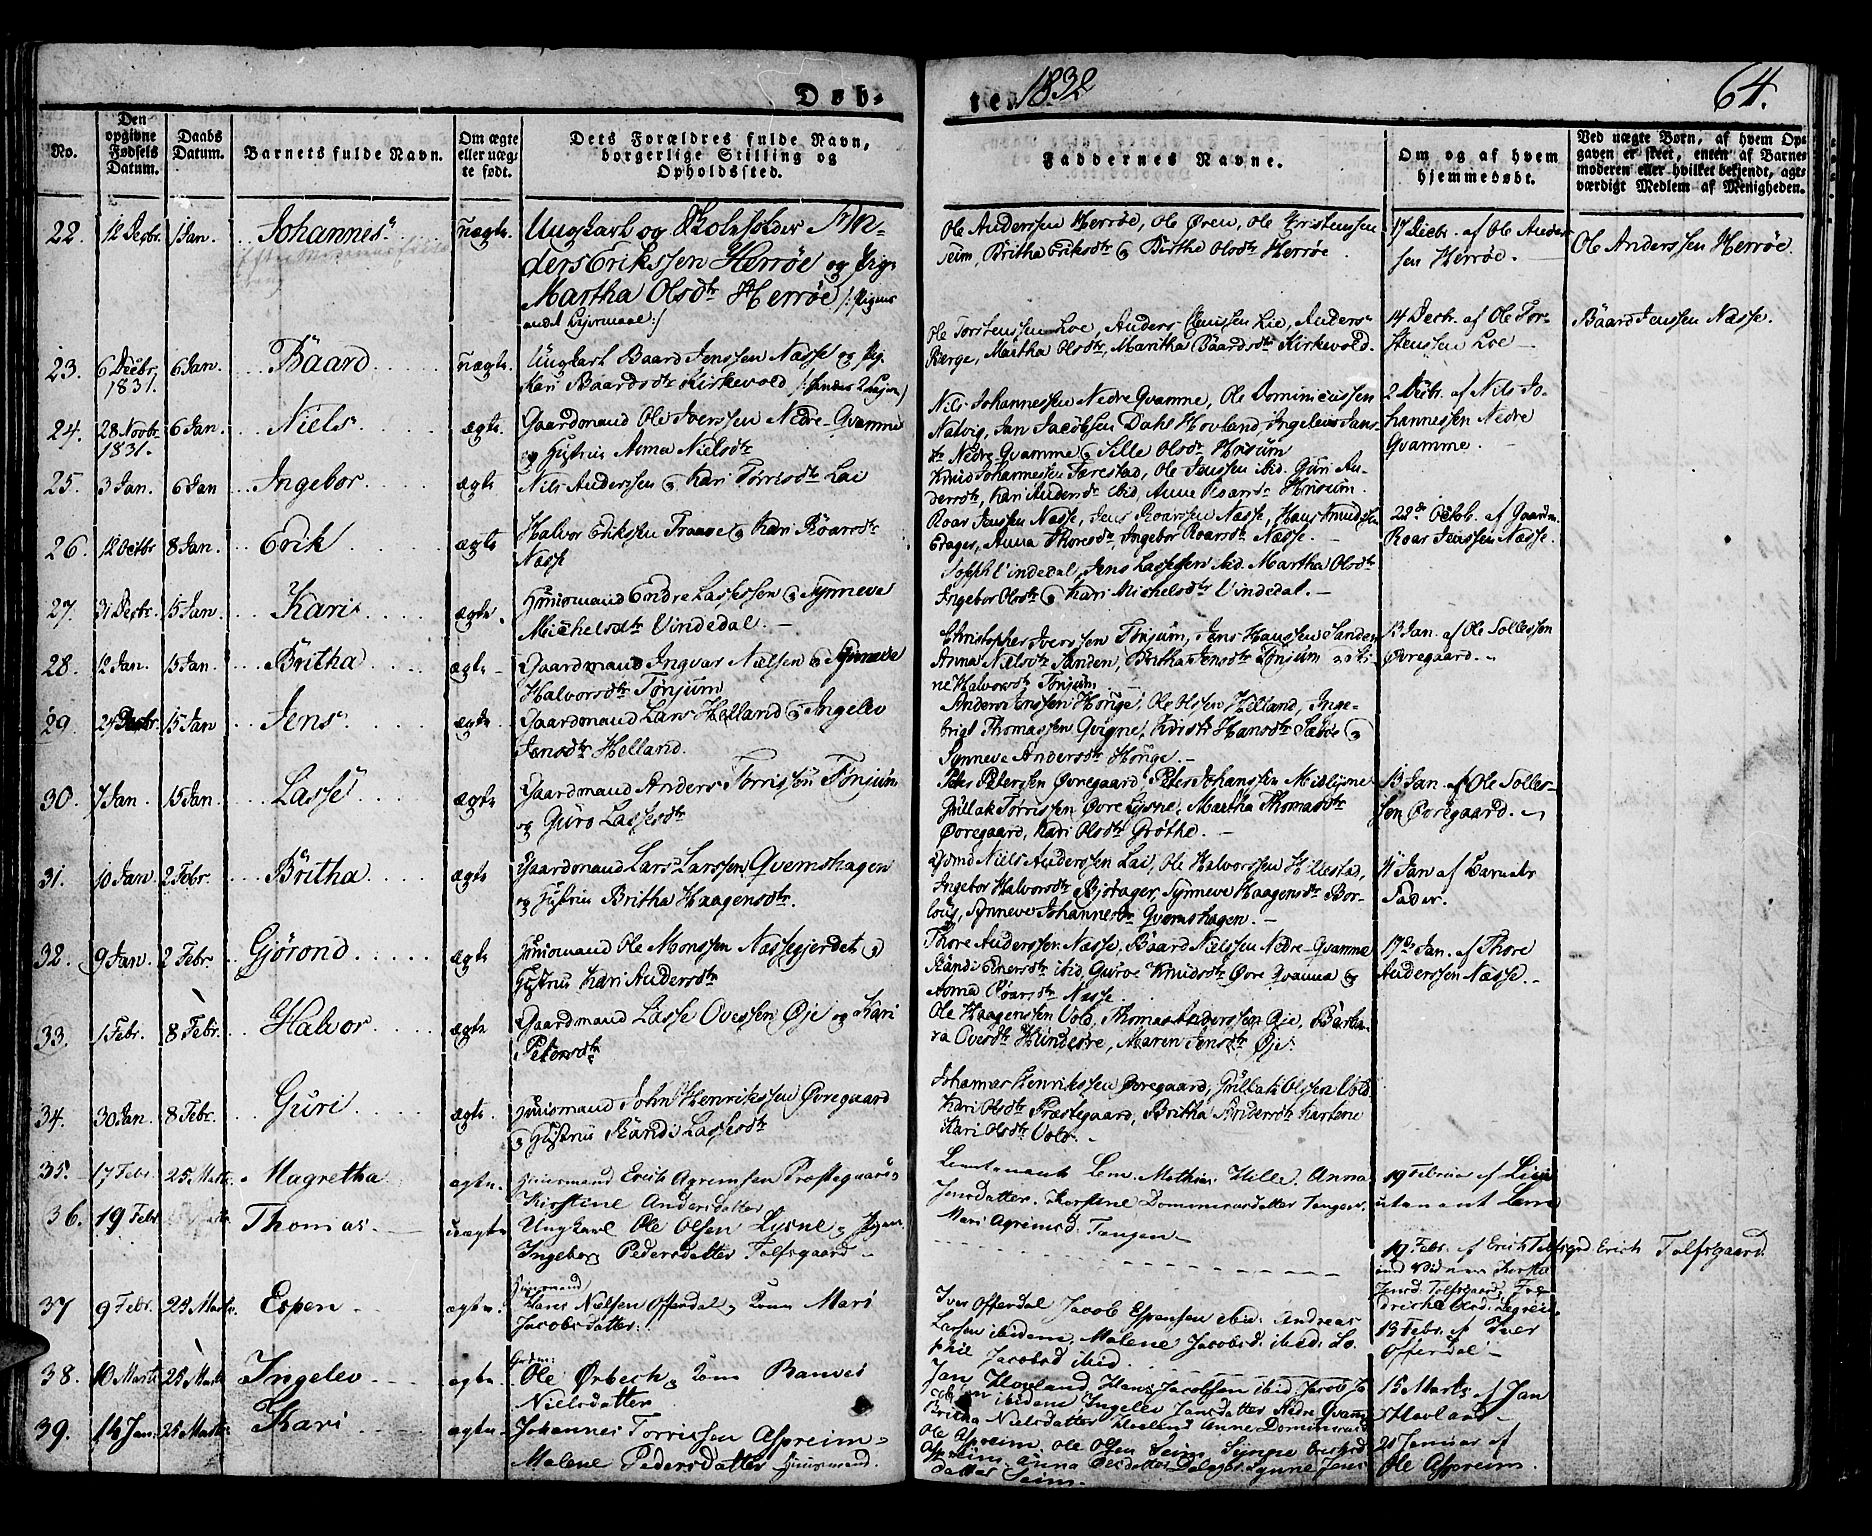 Døb-
te. 1832
64.
No.
Den opgivne Fødsels Datum.
Daabs Datum.
Barnets fulde Navn.
Om ægte eller uægte født.
Dets Forældres fulde Navn, borgerlige Stilling og Opholdssted.
Faddernes Navne.
Om og af hvem hjemmedøbt.
Ved uægte Børn, af hvem Opgaven er skeet, enten af Barnemoderen eller hvilket bekjendt, agtværdigt Medlem af Menigheden.
22. 12 Decbr. 1 Jan. Johannes uægte. Ungkarl og
ders Erikssen Herrøe og Pig.
Martha Olsdtr Herrøe /: Pigens
andet Lejermaal :/
Ole Anderssen Herrøe, Ole Øren, Ole Christenssen
Seim, Britha Eriksdtr og Birthe Olsdtr Herrøe
17 Decbr. af Ole Anders-
sen Herrøe.
Ole Anderssen Herrøe
23. 6 Decbr. 1831. 6 Jan. Baard uægte. Ungkarl Baard Jenssen Næsse og Pig.
Kari Baardsdtr Kirkevold
Ole Torstenssen Loe, Anders Jenssen Lie, Anders
Berge, Martha Olsdtr, Maritha Baardsdtr Kirkevold.
14 Decbr. af Ole Tor-
stenssen Loe
Baard Jenssen Næsse.
24. 28 Novbr 1831. 6 Jan. Niels ægte. Gaardmand Ole Iverssen Nedre Qvamme
og Hustrue Anna Nielsdtr
Nils Johannessen Nedre Qvamme, Ole Dominicussen
Natvig, Jan Jacobsen Dahl Hovland, Ingelev Jans-
dtr Nedre Qvamme og Sille Olsdtr Husum
2 Decbr. af Nils Jo-
hannessen Nedre
Qvamme.
25. 3 Jan. 6 Jan Ingebor ægte Nils Anderssen og Kari Torrisdtr Lai
Knud Johannessen Færestad, Ole Jenssen ibid. Guri An-
dersdtr, Kari Andersdtr ibid, Anne Roarsdtr Husum.
26. 12 Octbr 8 Jan. Erik ægte Halvor Erikssen Traave og Kari Roarsdtr
Næsse
Roar Jenssen Næsse, Jens Roarssen Næsse, Hans Knudssen
Erager, Anna Thoresdtr, Ingebor Roarsdtr Næsse.
22de Octob. af Gaardm.
Roar Jenssen Næsse.
27. 31 Decbr. 15 Jan. Kari ægte. Huusmand Endre Lassessen og Synneve
Michelsdtr Vindedal.
Vindedal, Jens Lassesen ibid. Martha Olsdtr
Ingebor Olsdtr og Kari Michelsdtr Vindedal.
28. 12 Jan. 15 Jan. Britha ægte Gaardmand Ingvar Nielsen og Synneve
Halvorsdtr Tønjum
Christopher Iverssen Tønjum, Jens Hanssen Sanden
Anna Nielsdtr Sanden, Britha Jensdtr Tønjum og
ne Halvorsdtr Tønjum
13 Jan. af Ole Sollessen
Øvregaard.
29. 24 Decbr. 15 Jan Jens ægte Gaardmand Lars Helland og Ingelev
Jensdtr Helland.
Anders Jenssen Houge, Ole Olsen Helland, Inge-
brigt Thomassen Qvigne, Kristi Hansdtr og
Synneve Andersdtr Houge.
30. 7 Jan. 15 Jan. Lasse ægte Gaardmand Anders Torrissen Tønjum
og Guro Lassesdtr
Peter Petersen Øvregaard, Peter Johanssen Midlysne
Gullak Torrissen Øvre Lysne, Martha Thomasdtr
Øvregaard, Kari Olsdtr Grøthe.
13 Jan. af Ole Solles-
sen Øvregaard.
31. 10 Jan 2 Febr. Britha ægte Gaardmand Lars Larssen Qvemshagen
og Hustrue Britha Haagensdtr.
Niels Anderssen Lai, Ole Halvorssen Hillestad,
Ingebor Halvorsdtr Bjørager, Synneve Haagensdtr Bor-
loug, Synneve Johannesdtr Qvemshagen.
11 Jan af Barnets
Fader.
32. 9 Jan. 2 Febr. Gjørond ægte Huusmand Ole Monssen Næssegjerdet og
Hustrue Kari Andersdtr
Thore Anderssen Næsse, Baard Nielssen Nedre Qvamme
Randi Einersdtr ibid, Gurve Knudsdtr Øvre Qvamme og
Anna Roarsdtr Næsse.
17de Jan. af Thore
Anderssen Næsse.
33. 1 Febr. 8 Febr. Halvor ægte Gaardmand Lasse Ovessen Øje og Kari
Petersdtr
Ole Haagenssen Vold, Thomas Anderssen Øje, Barba-
ra Ovesdtr Hundere, Maren Jensdtr Øje
34. 30 Jan. 8 Febr. Guri ægte. Huusmand John Henrikssen Øvregaard
og Hustrue Randi Lassesdtr
Johannes Henrikssen Øvregaard, Gullak Olssen Vold
Kari Olsdtr Præstegaard, Britha Andersdtr
Kari Olsdtr Vold.
35. 17 Febr 25 Marts. Magretha ægte. Huusmand Erich Agrimsen Præstegaard
Kirstine Andersdatter
Leutenant Lem Mathias Hille. Anna
Jensdatter. Kirstine Dominicusdatter Tangen
Mari Agrimsd. Tangen
19 Februar af Lieu-
tenant Lem
36. 19 Febr Thomas uægte Ungkarl Ole Olsen Lysne og Pigen
Ingeborg Pedersdatter Tolfsgaard
19 Febr. af Erich Tolfsgrd
Jensd. Tolfsgaard
Erich Tolfsgaard
37 9 Febr. 25 Marts. Espen ægte. Huusmand
Hans Nielsen Offerdal og Kone Mari
Jacobsdatter.
Iver Offerdal Jacob Espensen ibid. Andreas
Larsen ibidem, Malene Jacobsd. ibid. So-
phie Jacobsd ibid.
13 Febr. af Iver
Offerdal
38. 10 Marts 25 Marts Ingelev ægte. Gadm:
Ole Ørbech og Kone
Nielsdatter
Jan Hovland, Hans Jacobsen ibid Jacob
ibidem Ingelev Jansdatter Nedre Qvam
Britha Nielsdatter Hovland Anne Dominicusd
15 Marts af Jan
Hovland
39. 14 Jan. 25 Marts. Kari ægte Johannes Torrissen Aspreim
Malene Pedersdatter Huusmand.
Ole Aspreim. Ole Olsen Seim, Synne
Aspreim, Anna Synne Jens
datter Seim.
20 Januar af
Ole Aspreim.